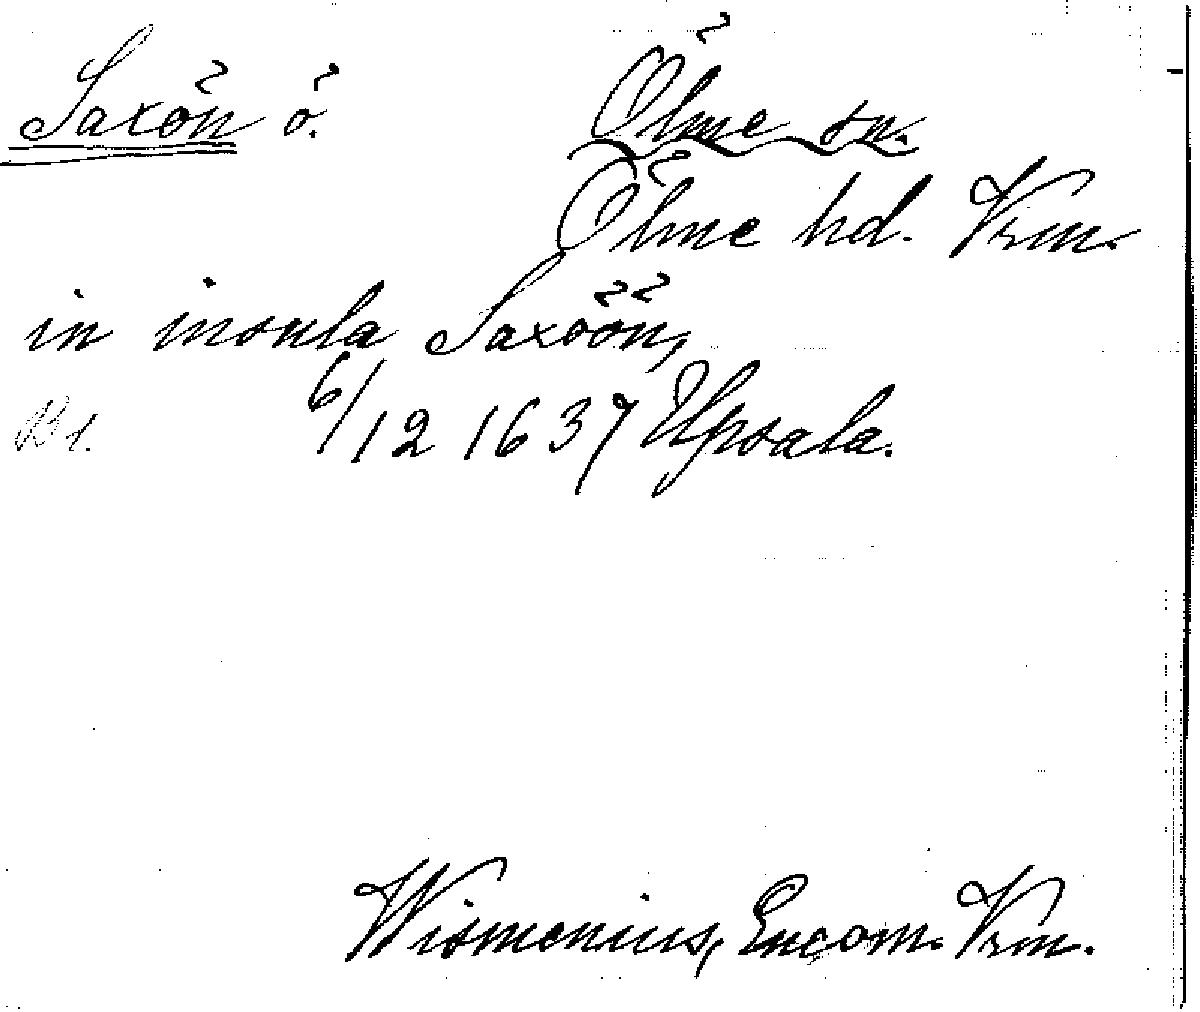 Saxön ö. Ölme sn.
Ölme hd. Vrm.
in insula Saxöön,
Bt. 6/12 1637 Upsala.
Wismenius, Encom. Vrm.